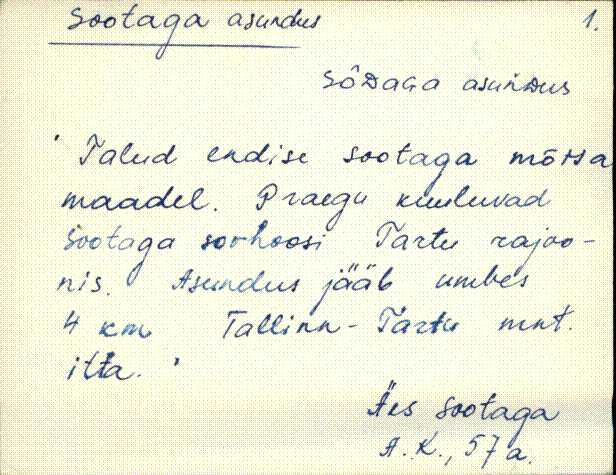 Sootaga asundus 1.
SÔDAGA asuńDus
" Talud endise Sootaga mõisa
maadel. Praegu kuuluvad
Sootaga sovhoosi Tartu rajoo-
nis. Asundus jääb umbes
4 km Tallinn-Tartu mnt.
itta. "
Äks Sootaga
A. K., 57 a.